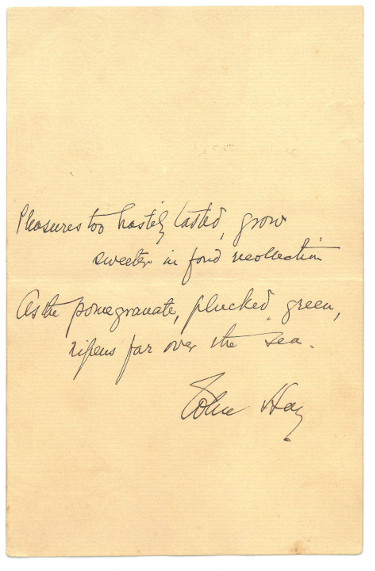 Pleasures too hastily tasted, grow
sweeter in fond recollection
As the pomegranate, plucked green,
ripens far over the sea.
John Hay